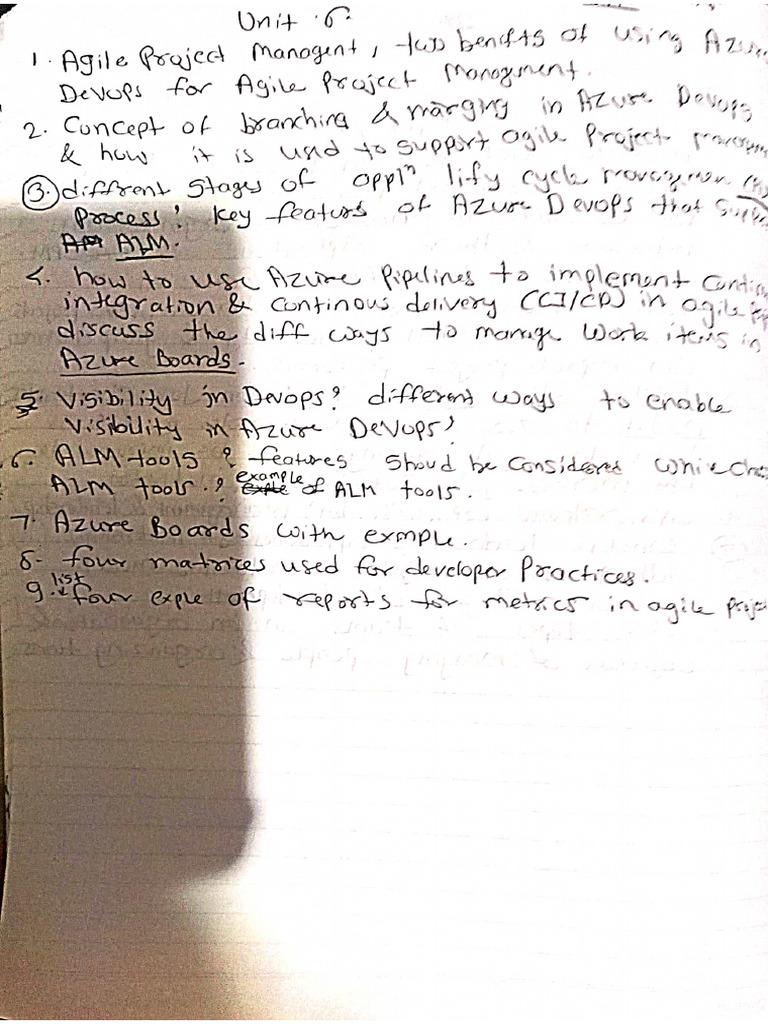 Unit 6.
1. Agile Project Managent, two benifts of using Azu
DeVops for Agile Project Managment.
2. Concept of branching & marging in Azure Devops
& how it is used to support agile Project
③. diffrent Stages of appln lify cycle
process? key featurs of Azure Devops that Supp
ALM.
4. how to use Azure Pipelines to implement contin
integration & continous delivery (CI/CD) in agile
discuss the diff ways to manage Work items in
Azure Boards.
5. Visibility in Devops? different ways to enable
Visibility in Azure DeVops?
6. ALM tools & features shoud be considered
ALM tools.? example of ALM tools.
7. Azure Boards with exmple.
8. four matrices used for developer Practices.
9. list four exple of reports for metrics in agile proje